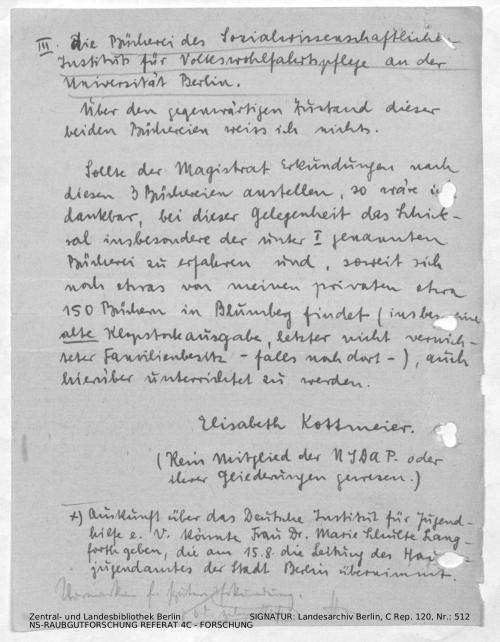 III. Die Bücherei des Sozialwissenschaftlichen
Instituts für Volkswohlfahrtspflege an der
Universität Berlin.
Über den gegenwärtigen Zustand dieser
beiden Büchereien weiss ich nichts.
Sollte der Magistrat Erkundungen nach
diesen 3 Büchereien anstellen, so wäre ich
dankbar, bei dieser Gelegenheit das Schick-
sal insbesondere der unter I genannten
Bücherei zu erfahren und, soweit sich
noch etwas von meinen privaten etwa
150 Büchern in Blumbeg findet (insbes. eine
alte Klopstockausgabe, letzter nicht vernich-
teter Familienbesitz - falls noch dort -), auch
hierüber unterrichtet zu werden.
Elisabeth Kottmeier.
(Kein Mitglied der NSDAP. oder
ihrer Gliederungen gewesen.)
x) Auskunft über das Deutsche Institut für Jugend-
hilfe e. V. könnte Frau Dr. Marie Schulte Lang-
forth geben, die am 15.8. die Leitung des Haupt-
jugendamtes der Stadt Berlin übernimmt.
Zentral- und Landesbibliothek Berlin
SIGNATUR: Landesarchiv Berlin, C Rep. 120, Nr.: 512
NS-RAUBGUTFORSCHUNG REFERAT 4C - FORSCHUNG